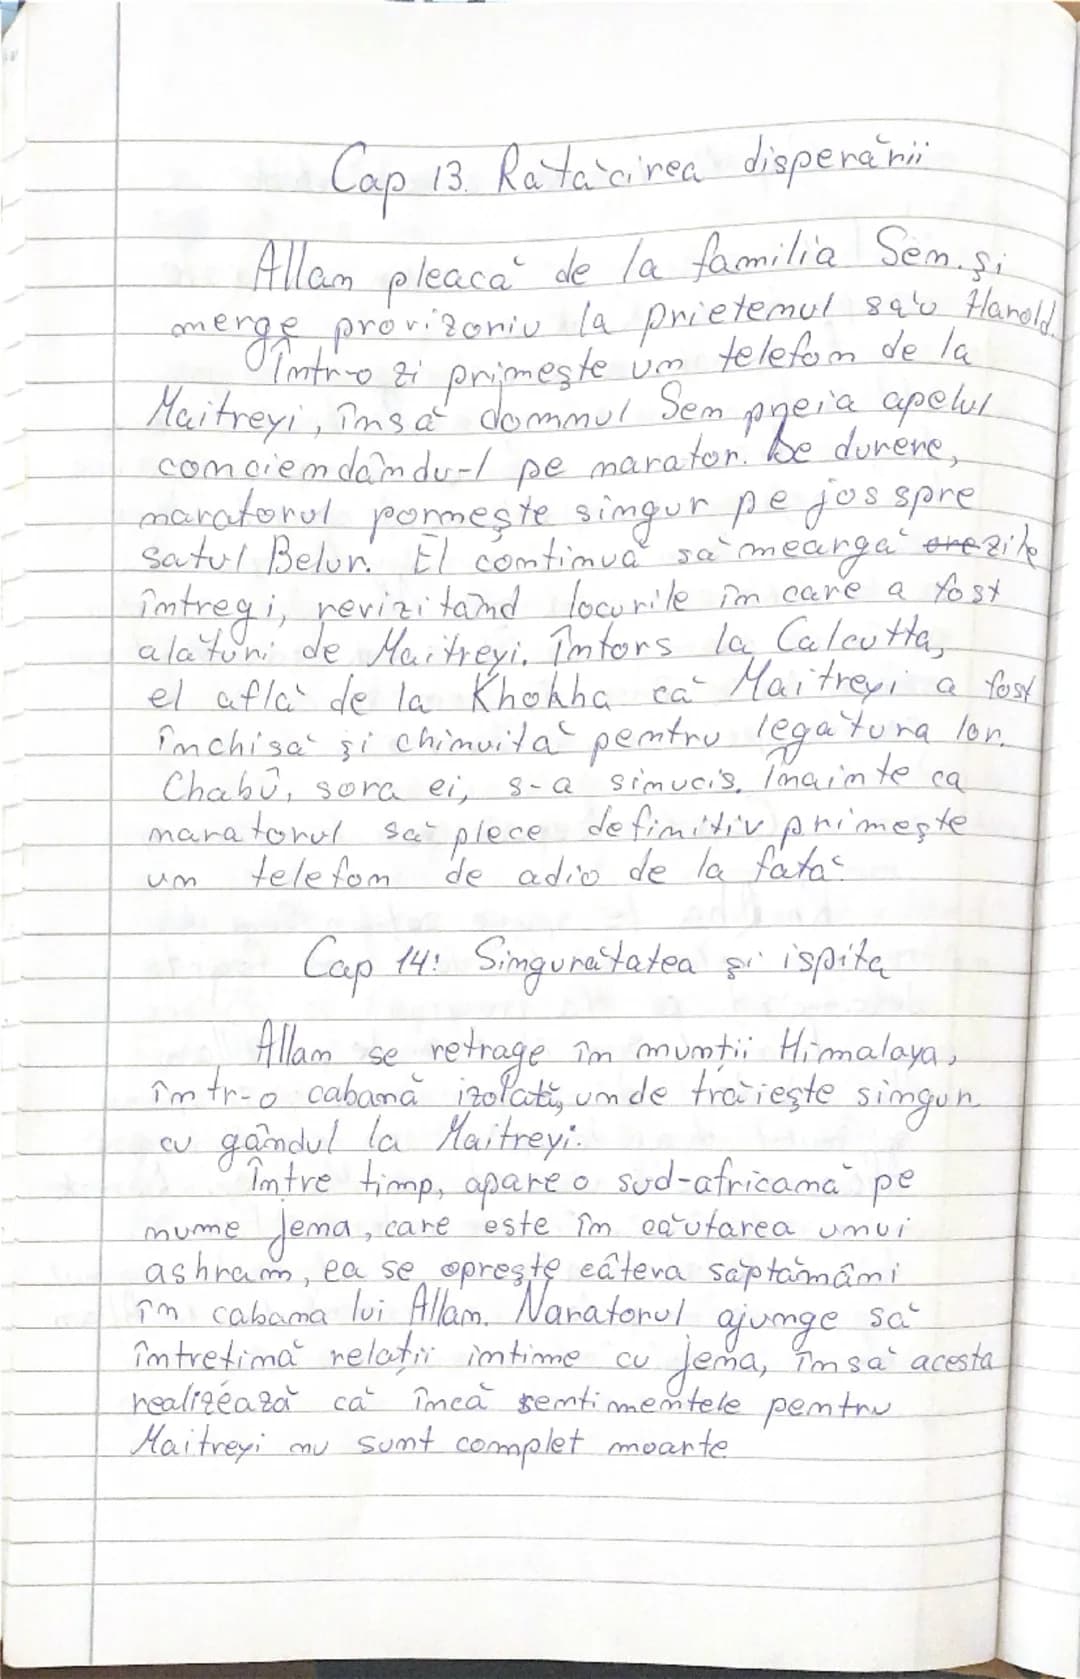 Cap 13. Rătăcirea disperării
Allan pleacă de la familia Sen. și
merge provizoriu la prietenul său Harold.
Într-o zi primește un telefon de la
Maitreyi, însă domnul Sen preia apelul
conciendându-l pe narator. De durere,
naratorul pornește singur pe jos spre
satul Belur. El continuă să meargă zile
întregi, revizitând locurile în care a fost
alături de Maitreyi. Întors la Calcutta,
el află de la Khokha că Maitreyi a fost
închisă și chinuită pentru legătura lor.
Chabû, sora ei, s-a sinucis. Înainte ca
naratorul să plece definitiv primește
un telefon de adio de la fată.
Cap 14: Singurătatea și ispita
Allan se retrage în munții Himalaya,
într-o cabană izolată, unde trăiește singur
cu gândul la Maitreyi.
Între timp, apare o sud-africană pe
nume Jena, care este în căutarea unui
ashram, ea se oprește câteva săptămâni
în cabana lui Allan. Naratorul ajunge să
întrețină relații intime cu Jena, însă acesta
realizează că încă sentimentele pentru
Maitreyi nu sunt complet moarte